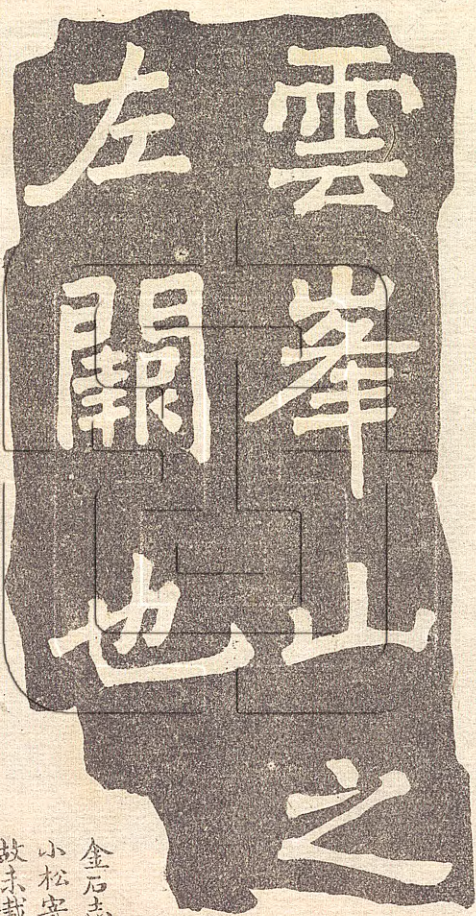 雲峯山之
左闕也
金石志
小松寄
故未載